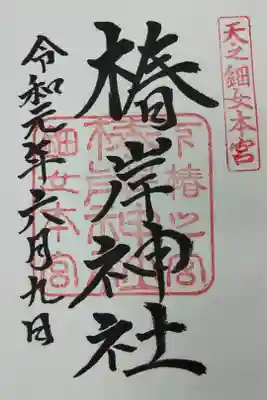 天之鈿女本宮
椿岸神社
令和元年六月九日
椿之宮
椿岸神社
鈿女本宮